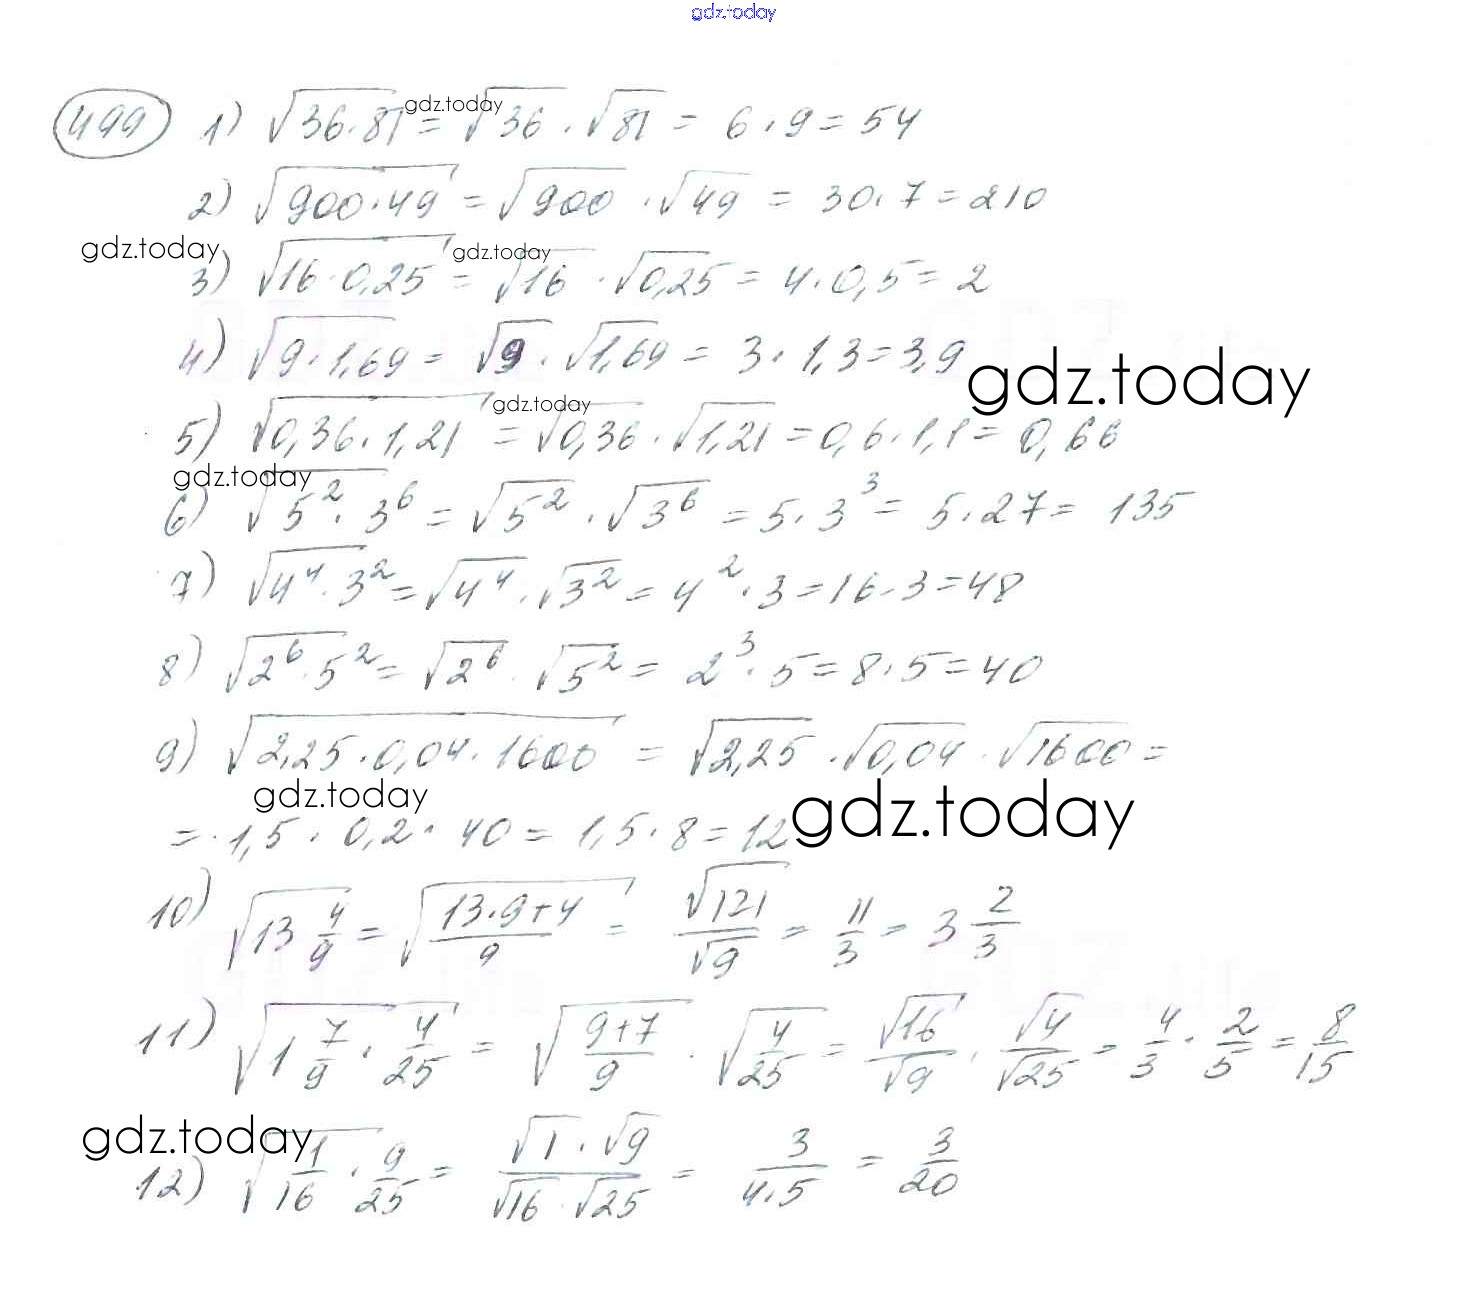 gdz.today
499 1) √36·81 = √36 · √81 = 6·9 = 54
gdz.today
2) √900·49 = √900 · √49 = 30·7 = 210
gdz.today
gdz.today
3) √16·0,25 = √16 · √0,25 = 4·0,5 = 2
4) √9·1,69 = √9 · √1,69 = 3·1,3 = 3,9
gdz.today
gdz.today
5) √0,36·1,21 = √0,36 · √1,21 = 0,6·1,1 = 0,66
gdz.today
6) √5²·3⁶ = √5² · √3⁶ = 5·3³ = 5·27 = 135
7) √4⁴·3² = √4⁴ · √3² = 4²·3 = 16·3 = 48
8) √2⁶·5² = √2⁶ · √5² = 2³·5 = 8·5 = 40
9) √2,25·0,04·1600 = √2,25 · √0,04 · √1600 =
gdz.today
gdz.today
= 1,5 · 0,2 · 40 = 1,5·8 = 12
10) √13 4/9 = √(13·9+4)/9 = √121/√9 = 11/3 = 3 2/3
11) √1 7/9 · 4/25 = √(9+7)/9 · √4/25 = √16/√9 · √4/√25 = 4/3 · 2/5 = 8/15
gdz.today
12) √1/16 · 9/25 = (√1 · √9)/(√16 · √25) = 3/(4·5) = 3/20